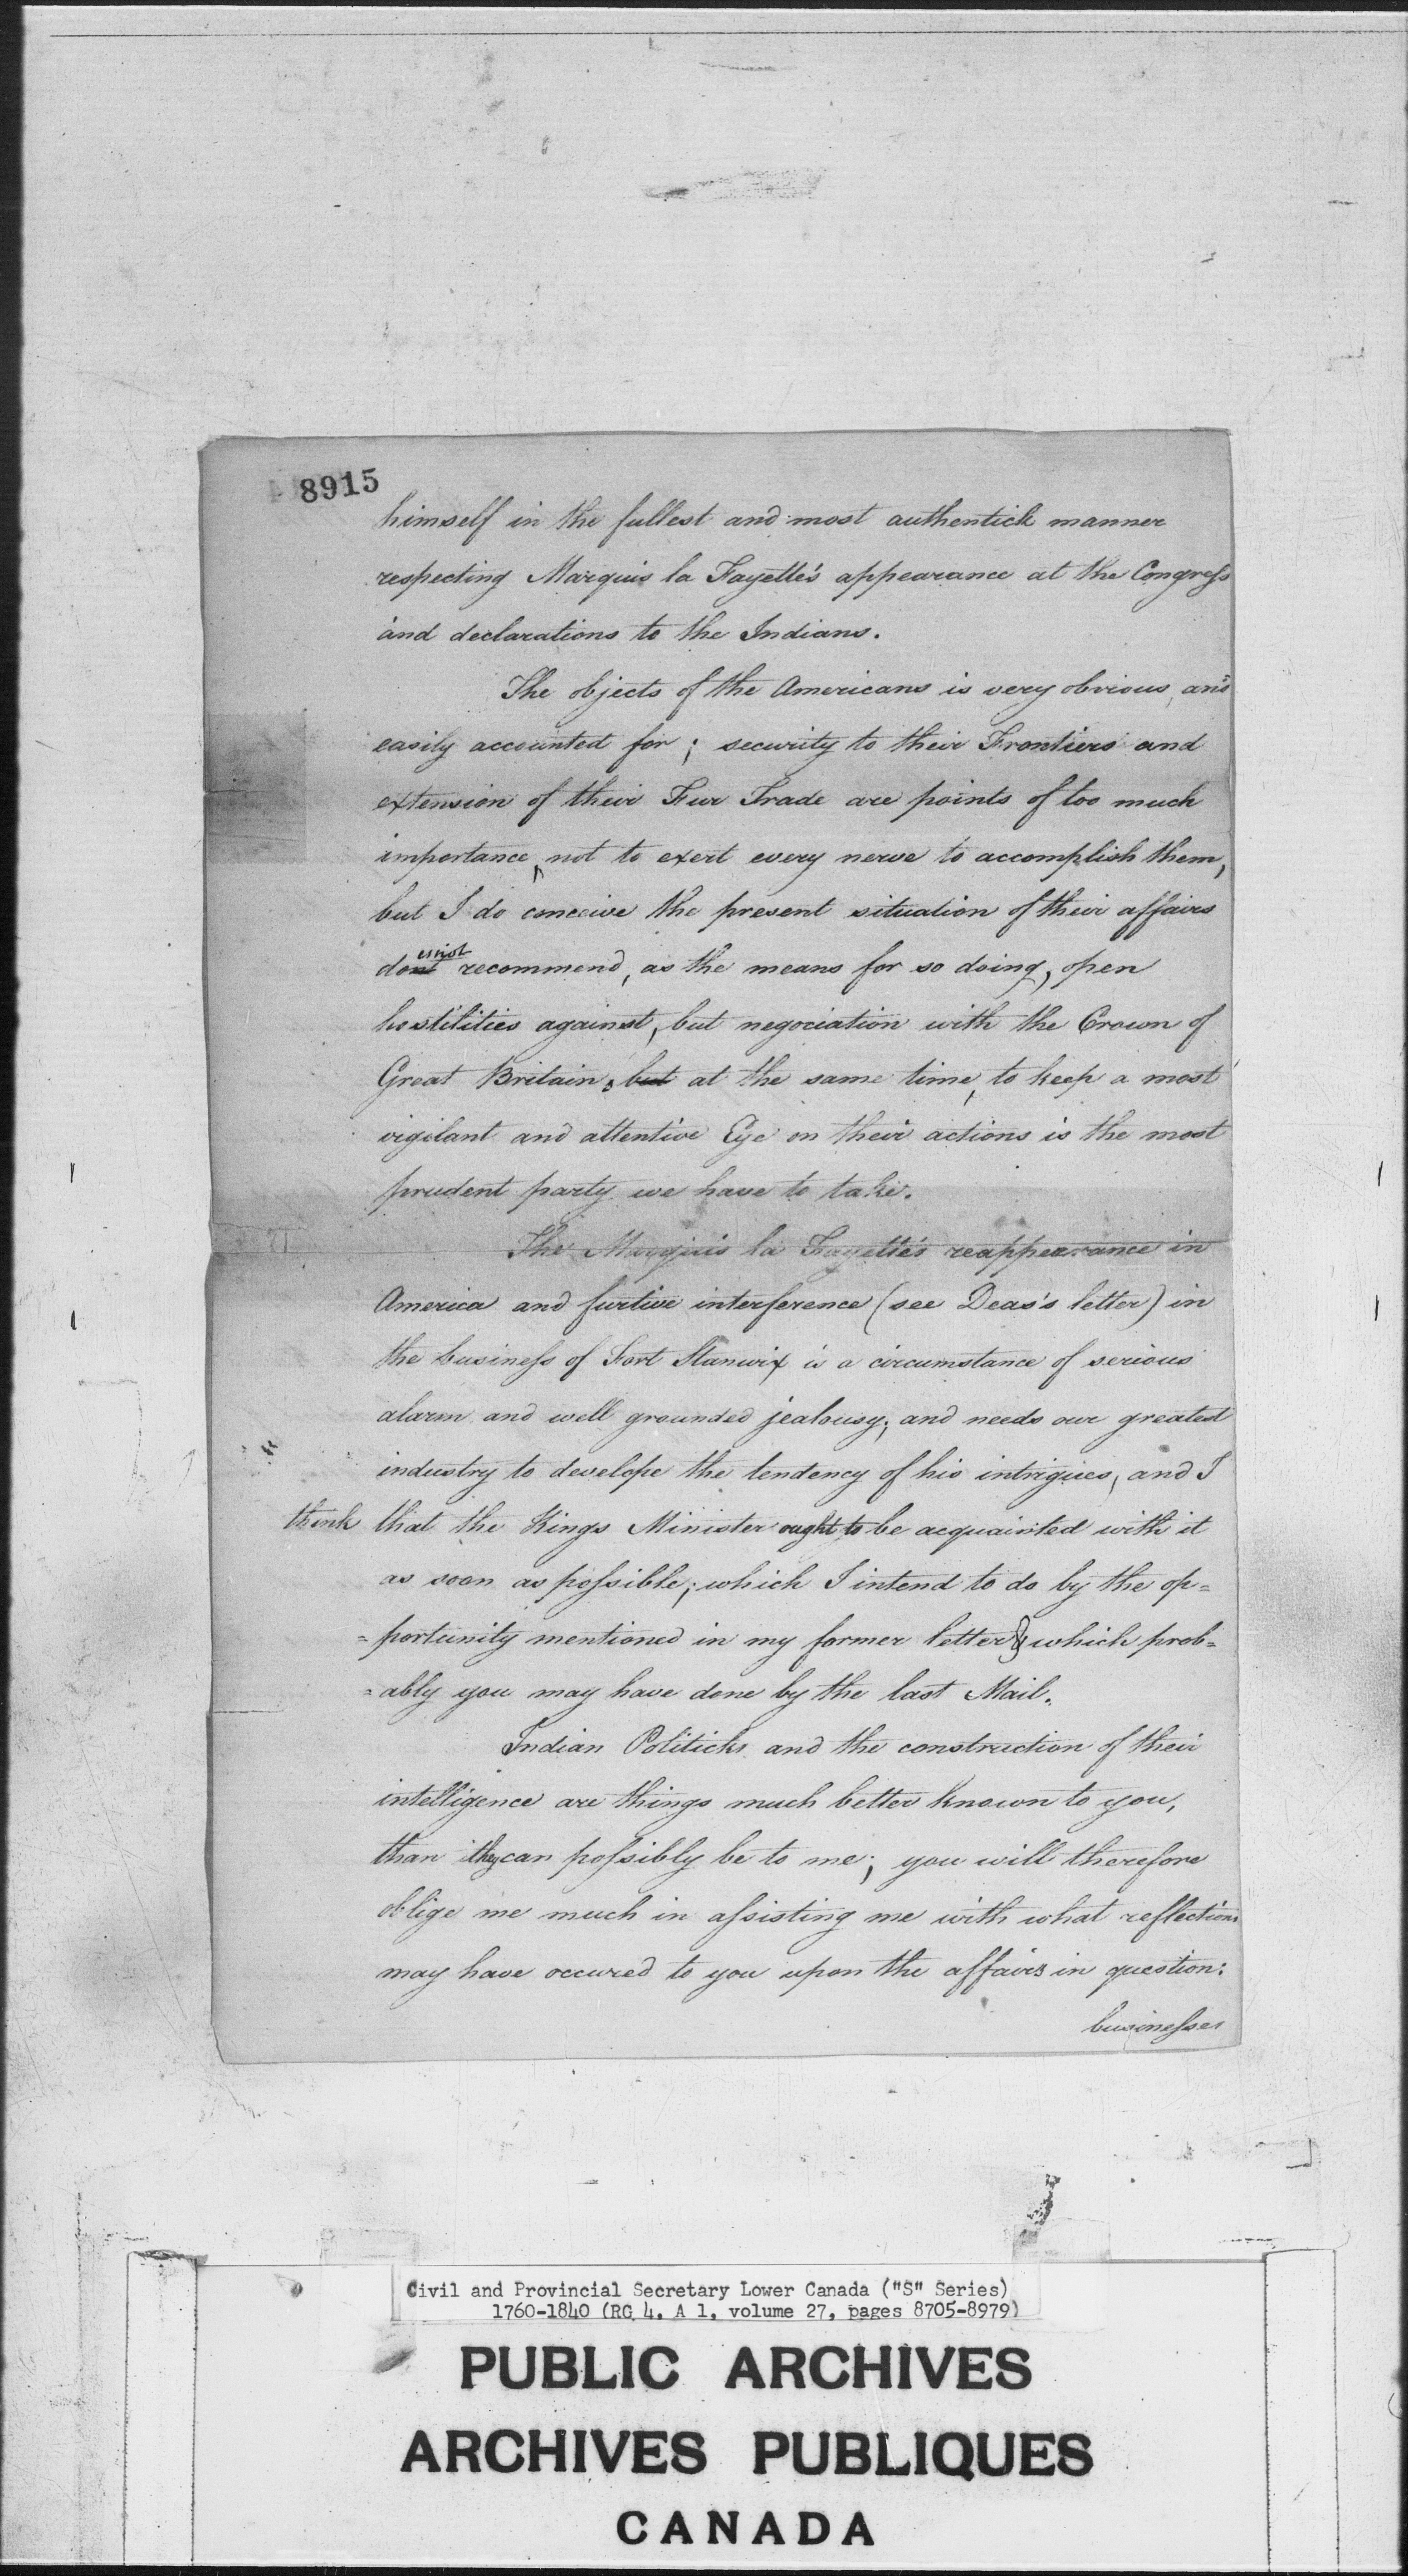 8915
himself in the fullest and most authentick manner
respecting Marquis la Fayette's appearance at the Congress
and declarations to the Indians.
The objects of the Americans is very obvious, and
easily accounted for; security to their Frontiers and
extension of their Fur Trade are points of too much
importance, not to exert every nerve to accomplish them,
but I do conceive the present situation of their affairs
es not
dont recommend, as the means for so doing, open
hostilities against, but negociation with the Crown of
Great Britain; but at the same time, to keep a most
vigilant and attentive Eye on their actions is the most
prudent party we have to take.
The Marquis la Fayette's reappearance in
America and furtive interference (see Deas's letter) in
the business of Fort Stanwix is a circumstance of serious
alarm and well grounded jealousy; and needs our greatest
industry to develope the tendency of his intrigues, and I
think that the Kings Minister ought to be acquainted with it
as soon as possible; which I intend to do by the op=
=portunity mentioned in my former letter & which prob=
=ably you may have done by the last Mail.
Indian Politicks and the construction of their
intelligence are things much better known to you,
than they can possibly be to me; you will therefore
oblige me much in assisting me with what reflections
may have occured to you upon the affairs in question:
businesses
Civil and Provincial Secretary Lower Canada ("S" Series)
1760-1840 (RG 4, A 1, volume 27, pages 8705-8979)
PUBLIC ARCHIVES
ARCHIVES PUBLIQUES
CANADA